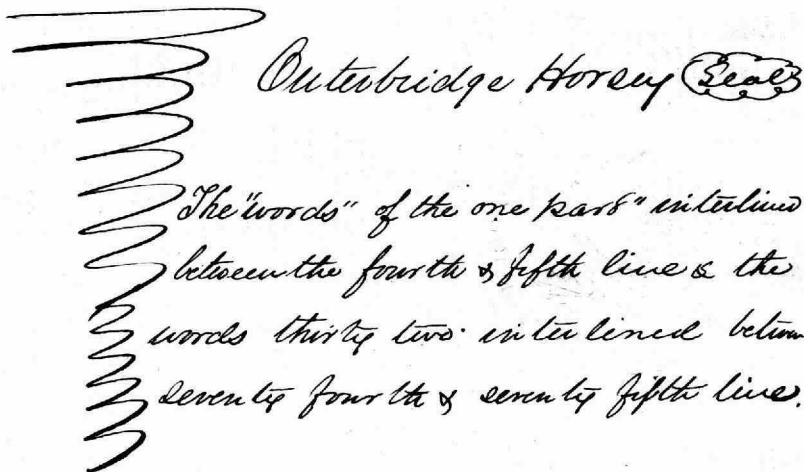 Outerbridge Horsey Seal
The "words" of the one part" interlined
between the fourth & fifth line & the
words thirty two interlined between
seventy fourth & seventy fifth line.